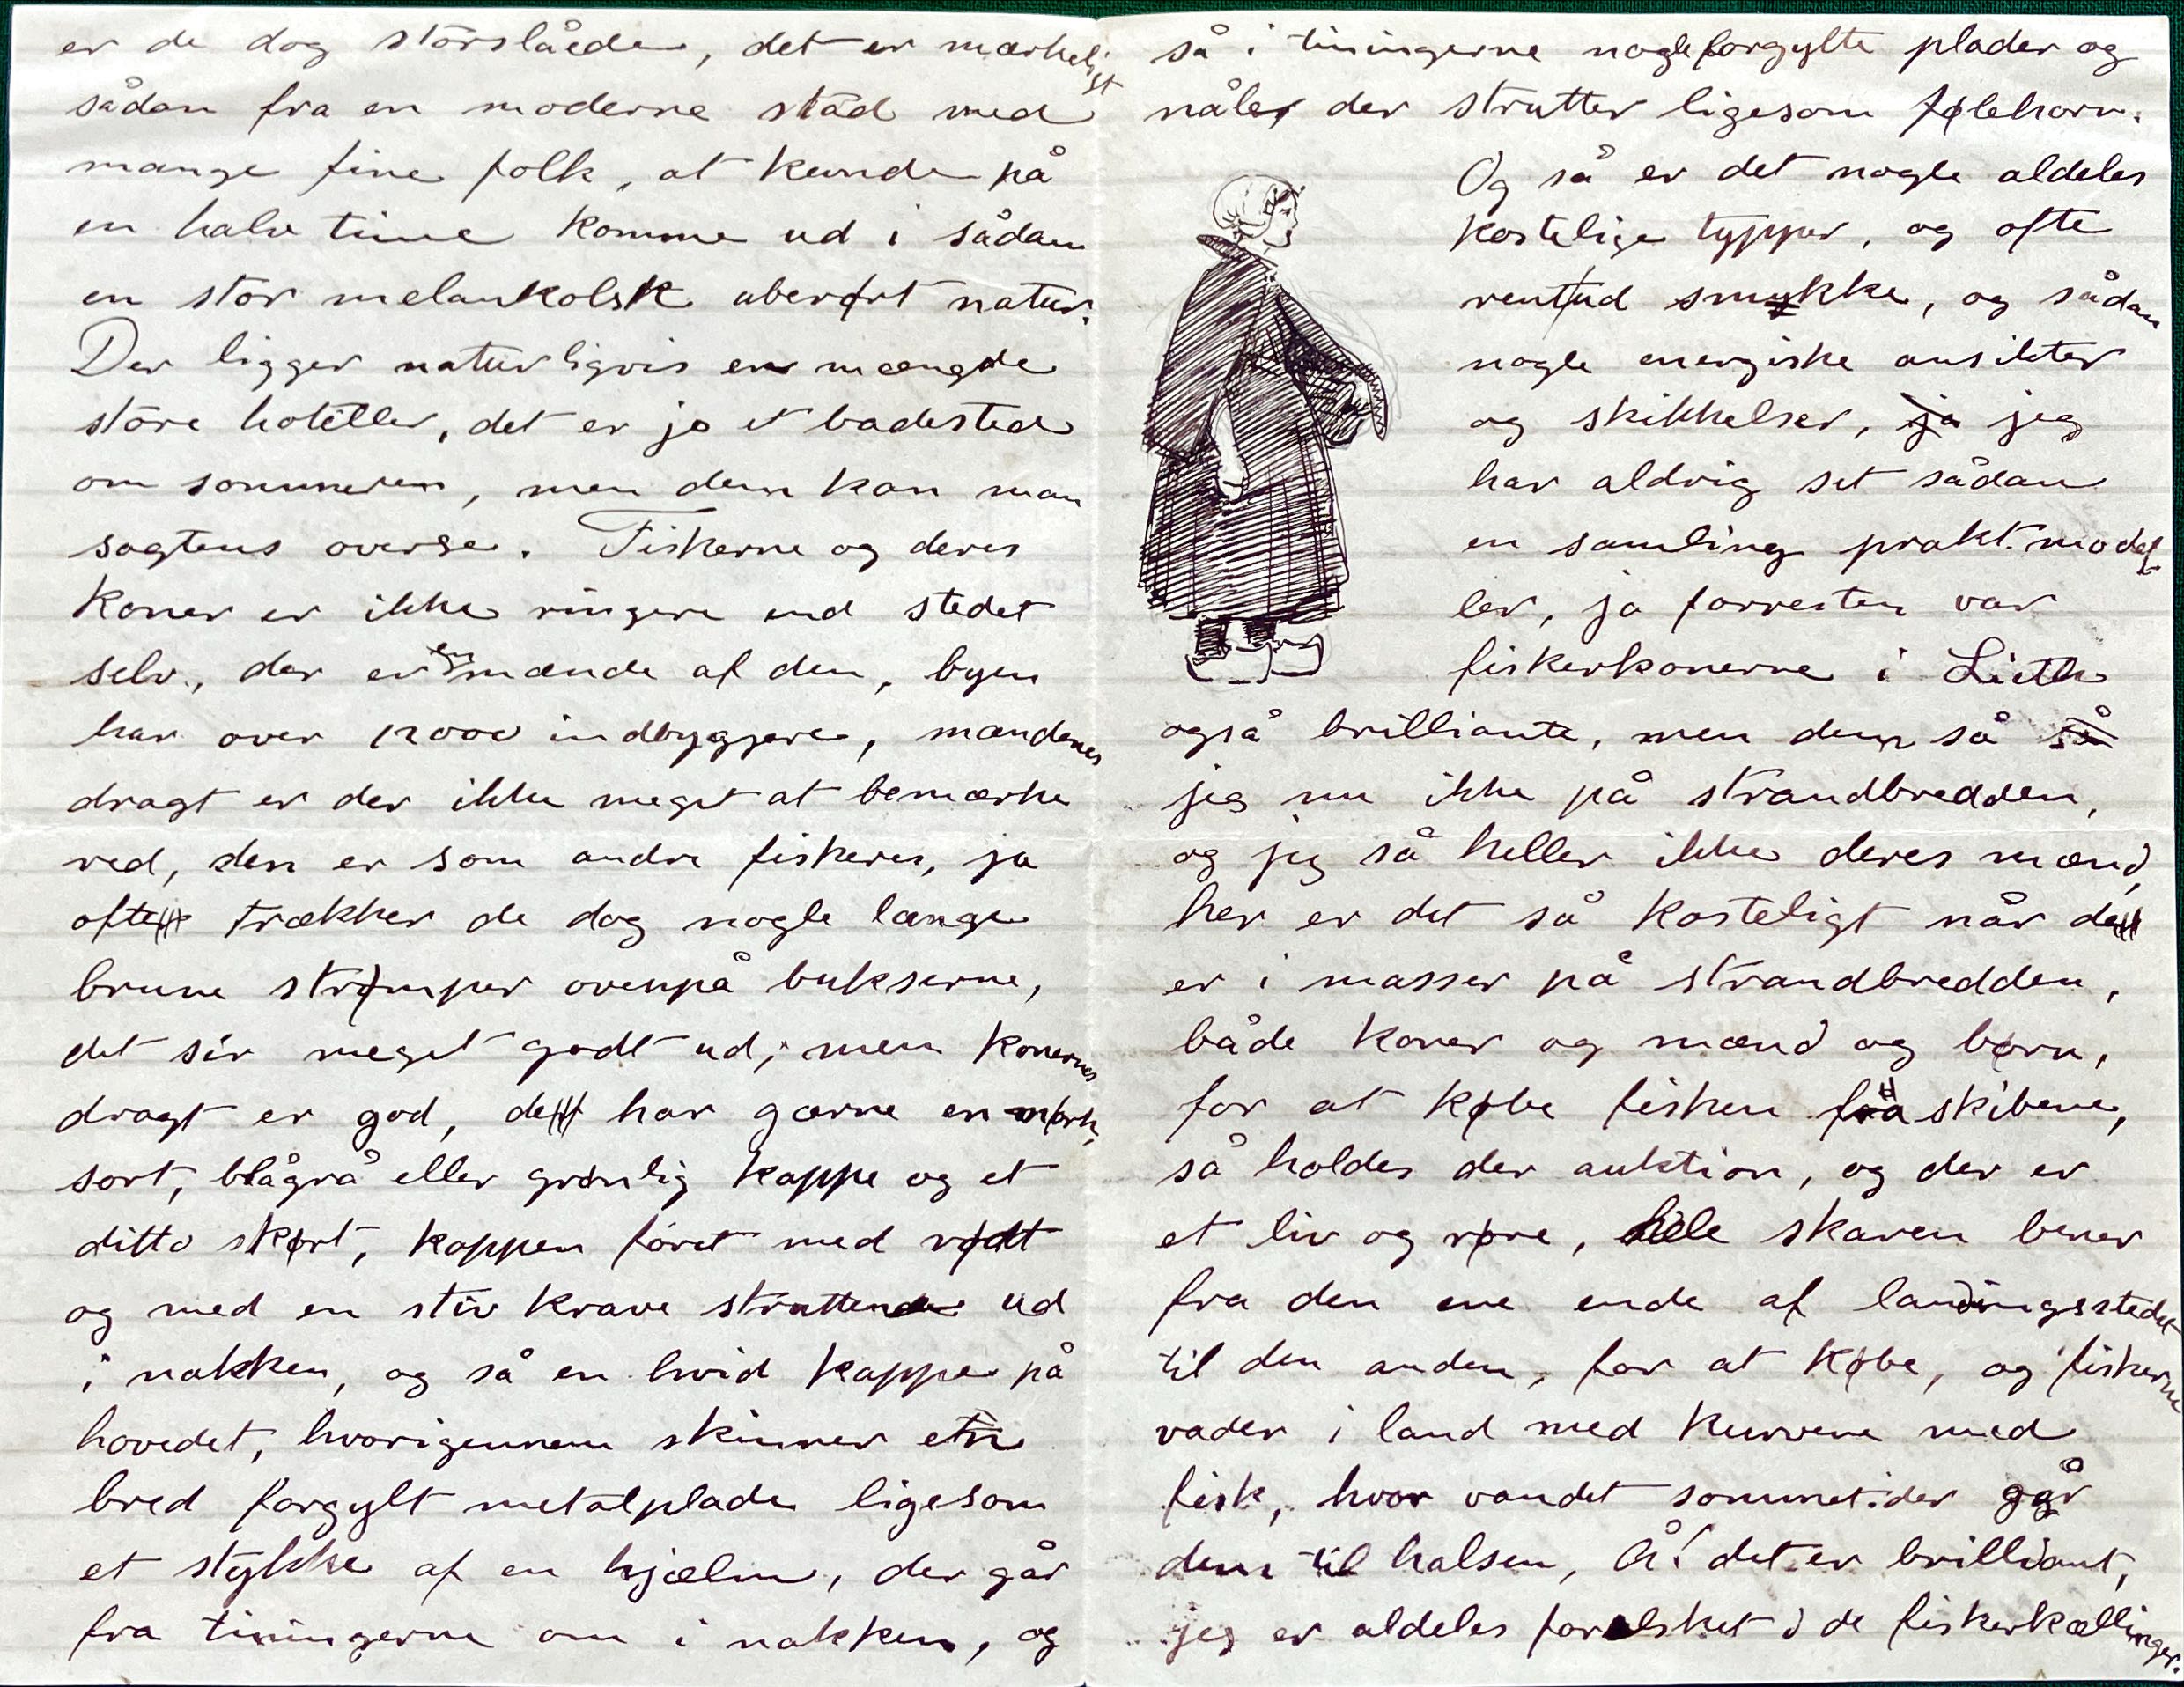 er de dog storslåede, det er mærkeligt
sådan fra en moderne stad med
mange fine folk, at kunde på
en halv time komme ud i sådan
en stor melankolsk uberørt natur.
Der ligger naturligvis en mængde
store hoteller, det er jo et badested
om sommeren, men dem kan man
sagtens overse. Fiskerne og deres
koner er ikke ringere end stedet
selv, der er en mænde af dem, byen
har over 12000 indbyggere, mændenes
dragt er der ikke meget at bemærke
ved, den er som andre fiskeres, ja
ofte trækker de dog nogle lange
brune strømper ovenpå bukserne,
det sér meget godt ud; men konernes
dragt er god, de har gærne en mørk,
sort, blågrå eller grønlig kappe og et
ditto skørt, kappen foret med rødt
og med en stiv krave struttende ud
i nakken, og så en hvid kappe på
hovedet, hvorigennem skinner en
bred forgylt metalplade ligesom
et stykke af en hjælm, der går
fra tiningerne om i nakken, og
så i tiningerne nogle forgylte plader og
nåle, der strutter ligesom følehorn.
Og så er det nogle aldeles
kostelige typper, og ofte
rent ud smukke, og sådan
nogle energiske ansikter
og skikkelser, ja jeg
har aldrig set sådan
en samling prakt-model-
ler, ja forresten var
fiskerkonerne i Lieth
også brilliante, men dem så så
jeg nu ikke på strandbredden,
og jeg så heller ikke deres mænd,
her er det så kosteligt når de
er i masser på strandbredden,
både koner og mænd og børn,
for at købe fisken fra skibene,
så holdes der auktion, og der er
et liv og røre, hele skaren bener
fra den ene ende af landingsstedet
til den anden, for at købe, og fiskerne
vader i land med kurvene med
fisk, hvor vandet sommetider går
dem til halsen, Å! det er brilliant,
jeg er aldeles forelsket i de fiskerkællinger.